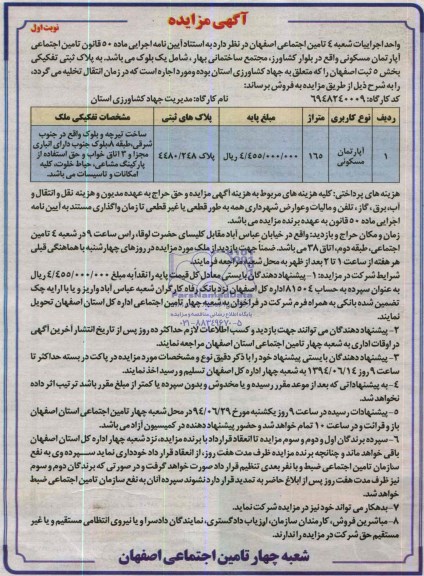 آگهی مزایده
نوبت اول
واحد اجراییات شعبه ٤ تامین اجتماعی اصفهان در نظر دارد به استناد آیین نامه اجرایی ماده ٥٠ قانون تامین اجتماعی
آپارتمان مسکونی واقع در بلوار کشاورز، مجتمع ساختمانی بهار، شامل یک بلوک می باشد. به پلاک ثبتی تفکیکی
بخش ٥ ثبت اصفهان را که متعلق به جهاد کشاورزی استان بوده و مورد اجاره است که در زمان انتقال تخلیه می گردد،
را به شرح ذیل از طریق مزایده به فروش برساند:
کد کارگاه: ٦٩٤٨٢٤٠٠٠٩ نام کارگاه: مدیریت جهاد کشاورزی استان
ردیف نوع کاربری متراژ مبلغ پایه پلاک های ثبتی مشخصات تفکیکی ملک
١ آپارتمان مسکونی ١٦٥ ٤/٤٥٥/٠٠٠/٠٠٠ ریال پلاک ٤٤٨٠/٢٤٨ ساخت تیرچه و بلوک واقع در جنوب
شرقی، طبقه ٨ بلوک جنوب دارای انباری
مجزا و ٣ اتاق خواب و حق استفاده از
پارکینگ مشاعی، حیاط خلوت، کلیه
امکانات و تاسیسات می باشد.
هزینه های پرداختی: کلیه هزینه های مربوط به هزینه آگهی مزایده و حق حراج به عهده مدیون و هزینه نقل و انتقال و
آب، برق، گاز، تلفن و مالیات و عوارض شهرداری همه به طور قطعی یا غیر قطعی تا زمان واگذاری مستند به آیین نامه
اجرایی ماده ٥٠ قانون به عهده برنده مزایده می باشد.
زمان و مکان حراج و بازدید: واقع در خیابان عباس آباد مقابل کلیسای حضرت لوقا، راس ساعت ٩ در شعبه ٤ تامین
اجتماعی، طبقه دوم، اتاق ٣٨ می باشد. ضمناً جهت بازدید از ملک مورد مزایده در روزهای چهارشنبه با هماهنگی قبلی
هر هفته از ساعت ١ تا ٢ بعد از ظهر به محل شعبه مراجعه فرمایند.
شرایط شرکت در مزایده: ١- پیشنهاد دهندگان بایستی معادل کل قیمت پایه را نقداً به مبلغ ٤/٤٥٥/٠٠٠/٠٠٠ ریال
به عنوان سپرده به حساب ٨١٥٠٤ اداره کل اصفهان نزد بانک رفاه کارگران شعبه عباس آباد واریز و یا با ارایه چک
تضمین شده بانکی به همراه فرم شرکت در فراخوان به شعبه چهار تامین اجتماعی اداره کل استان اصفهان تحویل
نمایند.
٢- پیشنهاد دهندگان می توانند جهت بازدید و کسب اطلاعات لازم حداکثر ده روز پس از تاریخ انتشار آخرین آگهی
در اوقات اداری به شعبه چهار تامین اجتماعی استان اصفهان مراجعه نمایند.
٣- پیشنهاد دهندگان بایستی پیشنهاد خود را با ذکر دقیق نوع و مشخصات مورد مزایده در پاکت در بسته حداکثر تا
ساعت ٩ روز ١٣٩٤/٠٦/١٤ به شعبه چهار اداره کل اصفهان تسلیم و رسید اخذ نمایند.
٤- به پیشنهاداتی که بعد از موعد مقرر رسیده و یا مخدوش و بدون سپرده یا کمتر از مبلغ مقرر باشد ترتیب اثر داده
نخواهد شد.
٥- پیشنهادات رسیده در ساعت ٩ روز یکشنبه مورخ ٩٤/٠٦/٢٩ در محل شعبه چهار تامین اجتماعی استان اصفهان
باز و قرائت و در ساعت ١٠ تمام خواهد شد و حضور پیشنهاد دهنده در کمیسیون آزاد می باشد.
٦- سپرده برندگان اول و دوم و سوم مزایده تا انعقاد قرارداد با برنده مزایده، نزد شعبه چهار اداره کل استان اصفهان
باقی خواهد ماند و چنانچه برنده مزایده ظرف مدت هفت روز، از انعقاد قرارداد خودداری نماید سپرده وی به نفع
سازمان تامین اجتماعی ضبط و با نفر بعدی تنظیم قرارداد صورت خواهد گرفت و در صورتی که برندگان دوم و سوم
نیز ظرف مدت هفت روز پس از ابلاغ حاضر به تمدید قرارداد نشوند سپرده آنان به نفع سازمان تامین اجتماعی ضبط
خواهد شد.
٧- بدهکار می تواند خود نیز در مزایده شرکت نماید.
٨- مباشرین فروش، کارمندان سازمان، ارزیاب دادگستری، نمایندگان دادسرا و یا نیروی انتظامی مستقیم و یا غیر
مستقیم حق شرکت در مزایده را ندارند.
شعبه چهار تامین اجتماعی اصفهان